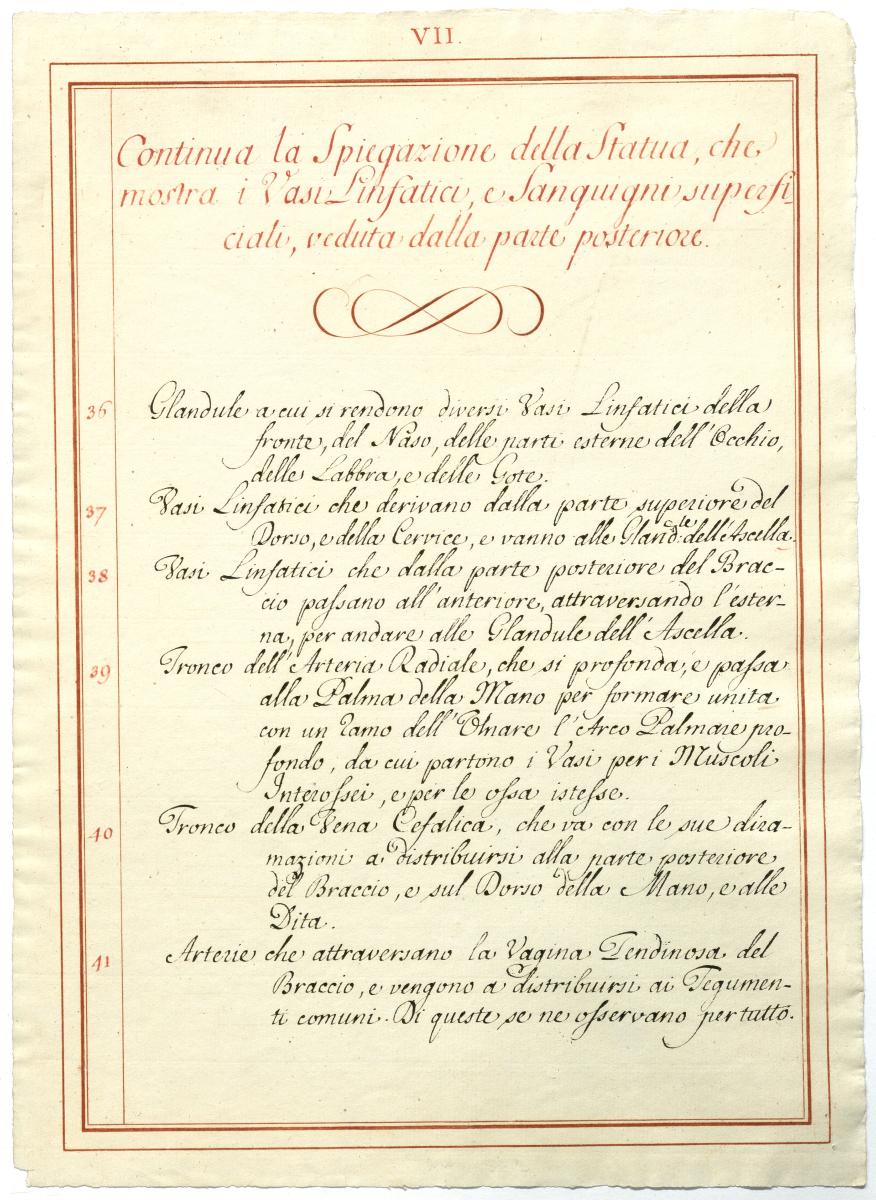 VII.
Continua la Spiegazione della Statua, che
mostra i Vasi Linfatici, e Sanguigni superfi-
ciali, veduta dalla parte posteriore.
36 Glandule a cui si rendono diversi Vasi Linfatici della
fronte, del Naso, delle parti esterne dell'Occhio,
delle Labbra, e delle Gote.
37 Vasi Linfatici che derivano dalla parte superiore del
Dorso, e della Cervice, e vanno alle Gland.le dell'Ascella.
38 Vasi Linfatici che dalla parte posteriore del Brac-
cio passano all'anteriore, attraversando l'ester-
na, per andare alle Glandule dell'Ascella.
39 Tronco dell'Arteria Radiale, che si profonda, e passa
alla Palma della Mano per formare unita
con un ramo dell'Ulnare l'Arco Palmare pro-
fondo, da cui partono i Vasi per i Muscoli
Interossei, e per le ossa istesse.
40 Tronco della Vena Cefalica, che va con le sue dira-
mazioni a distribuirsi alla parte posteriore
del Braccio, e sul Dorso della Mano, e alle
Dita.
41 Arterie che attraversano la Vagina Tendinosa del
Braccio, e vengono a distribuirsi ai Tegumen-
ti comuni. Di queste se ne osservano per tutto.